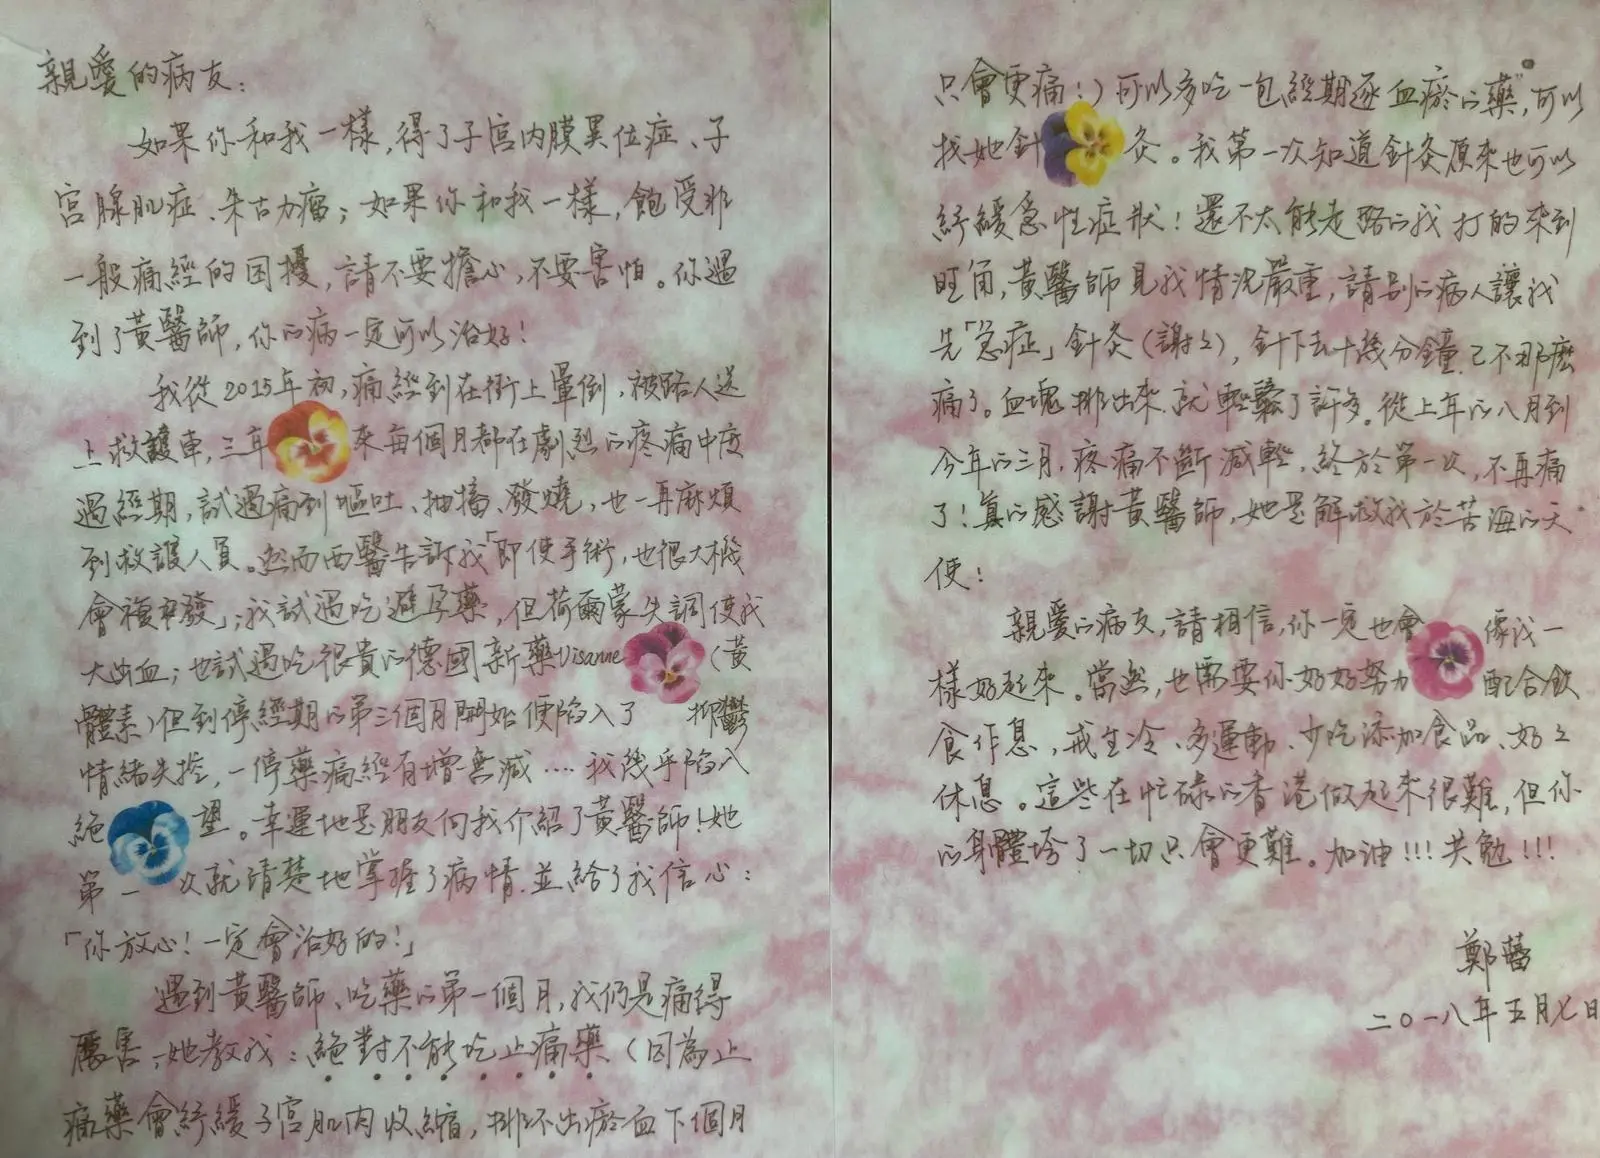 親愛的病友：
如果你和我一樣，得了子宮內膜異位症、子
宮腺肌症、朱古力瘤；如果你和我一樣，飽受非
一般痛經的困擾，請不要擔心，不要害怕。你遇
到了黃醫師，你的病一定可以治好！
我從2015年初，痛經到在街上暈倒，被路人送
上救護車，三年來每個月都在劇烈的疼痛中度
過經期，試過痛到嘔吐、抽搐、發燒，也一再麻煩
到救護人員。然而西醫告訴我「即使手術，也很大機
會複發」；我試過吃避孕藥，但荷爾蒙失調使我
大出血；也試過吃很貴的德國新藥Visanne（黃
體素）但到停經期的第三個月開始便陷入了抑鬱
情緒失控，一停藥痛經有增無減....我幾乎陷入
絕望。幸運地是朋友向我介紹了黃醫師！她
第一次就清楚地掌握了病情，並給了我信心：
「你放心！一定會治好的！」
遇到黃醫師、吃藥的第一個月，我仍是痛得
厲害，她教我：絕對不能吃止痛藥（因為止
痛藥會紓緩子宮肌肉收縮，排不出瘀血下個月
只會更痛！）可以多吃一包經期逐血瘀的藥，可以
找她針灸。我第一次知道針灸原來也可以
紓緩急性症狀！還不太能走路的我打的來到
旺角，黃醫師見我情況嚴重，請別的病人讓我
先「急症」針灸（謝々），針下去十幾分鐘，已不那麼
痛了。血塊排出來，就輕鬆了許多。從上年的八月到
今年的三月，疼痛不斷減輕，終於第一次，不再痛
了！真的感謝黃醫師，她是解救我於苦海的天
使！
親愛的病友，請相信，你一定也會像我一
樣好起來。當然，也需要你好好努力配合飲
食作息，戒生冷、多運動、少吃添加食品、好々
休息。這些在忙碌的香港做起來很難，但你
的身體垮了一切只會更難。加油！！！共勉！！！
鄭蕾
二〇一八年五月七日